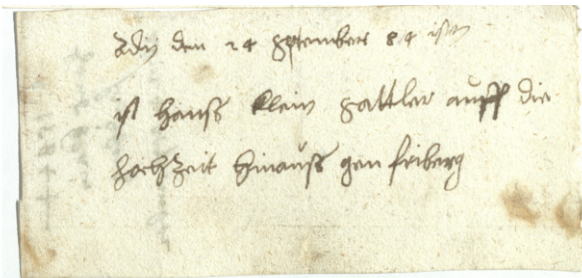 Adij den 24 September 84 ist
ist Hanss Klein Sattler auff die
hochzeit hinauss gen friberg